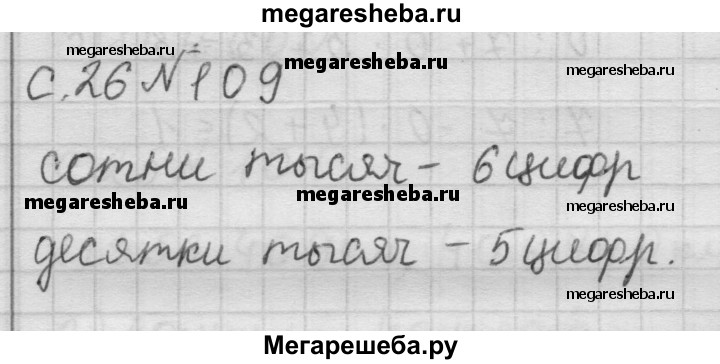 megaresheba.ru
megaresheba.ru
С. 26 № 109
megaresheba.ru
megaresheba.ru
сотни тысяч – 6 цифр
megaresheba.ru
megaresheba.ru
megaresheba.ru
десятки тысяч – 5 цифр.
megaresheba.ru
Мегарешеба.ру